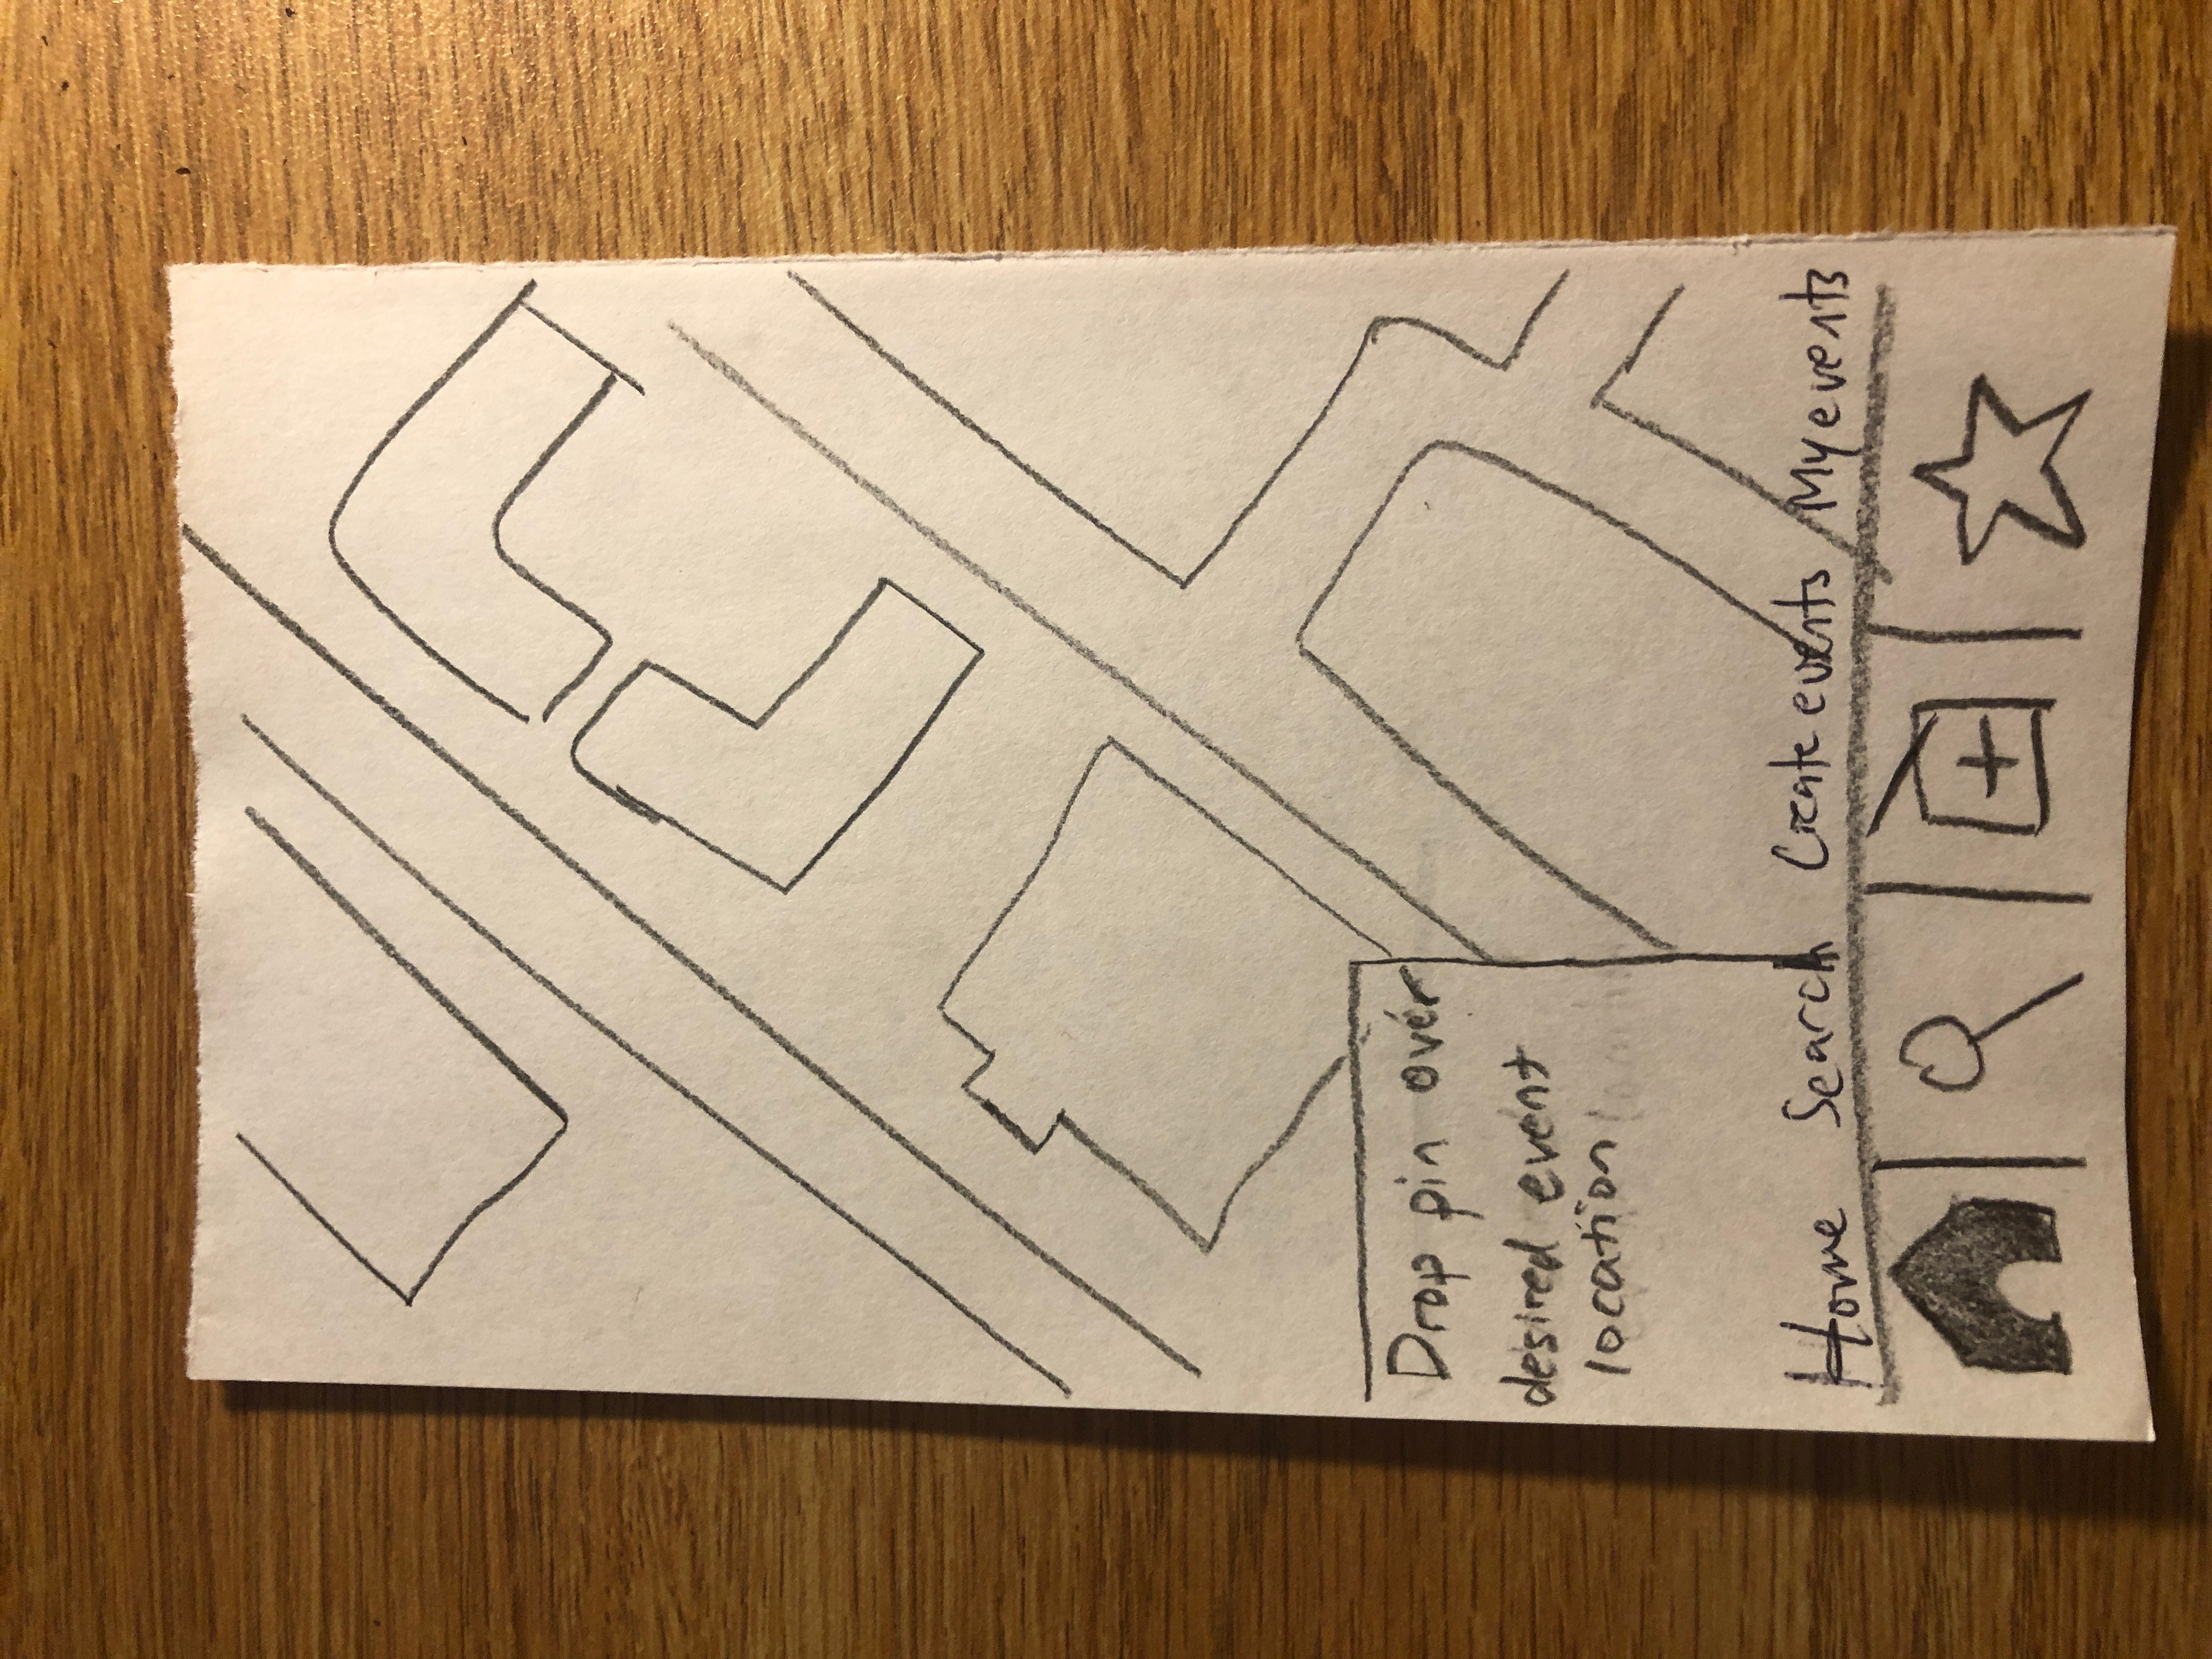 Drop pin over
desired event
location
Home Search Create events My events